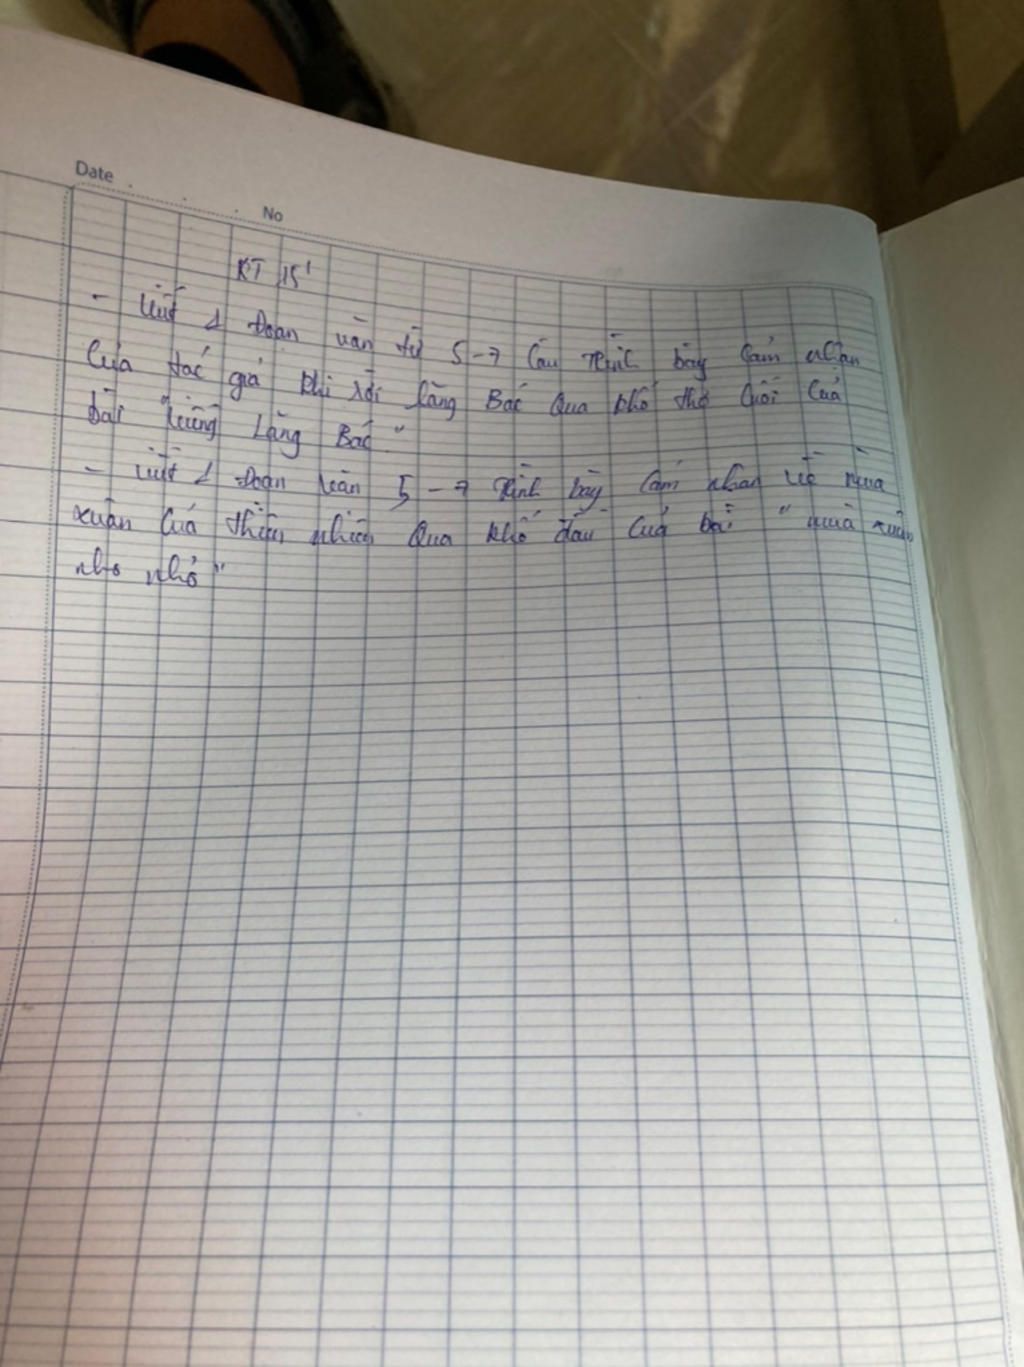 Date
No
KT 15'
- Viết 1 Đoạn văn từ 5-7 Câu trình bày Cảm nhận
Của tác giả khi rời Lăng Bác Qua khổ thơ Cuối Của
bài "Viếng Lăng Bác"
- Viết 1 Đoạn văn 5-7 trình bày Cảm nhận về mùa
xuân Của thiên nhiên Qua khổ đầu Của bài "mùa xuân
nho nhỏ"